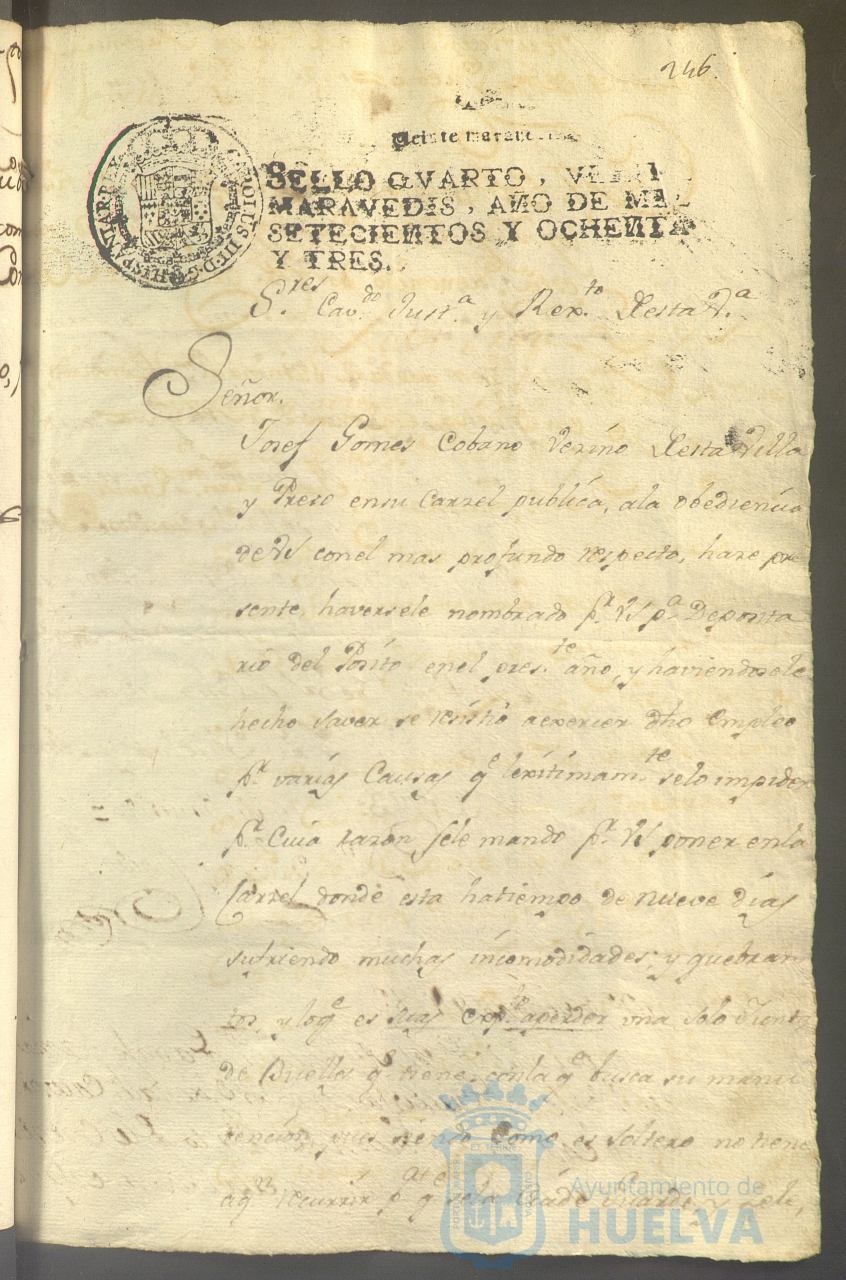 246.
Veinte maraue
CAROLUS III·D·G·HISPANIAR·REX
SELLO QVARTO, VEINT
MARAVEDIS, AÑO DE MIL
SETECIENTOS Y OCHENTA
Y TRES.
S.res Cav.do Just.a y Rex.to Desta V.a
Señor.
Josef Gomes Cobano Vezino Desta Villa
y Preso ensu Carzel publica, ala obediencia
de VS conel mas profundo respecto, haze pre
sente, haversele nombrado p.r VS p.a Deposita
rio del Posito enel pres.te año, y haviendosele
hecho saver se resistio aexercer dho empleo
p.r varias Causas q.e lexitimam.te selo impiden
p.r Cuia razon sele mando p.r VS poner enla
Carzel donde esta hatiempo de nueve dias
sufriendo muchas incomodidades, y quebran
tos, y loq.e es mas aperder una sola Junta
de Buelles q.e tiene, conla q.e busca su manu
tencion, pues siendo Como es soltero no tiene
aq.n recurrir p.a q.e sela guarde, y Zele,
Ayuntamiento de
HUELVA